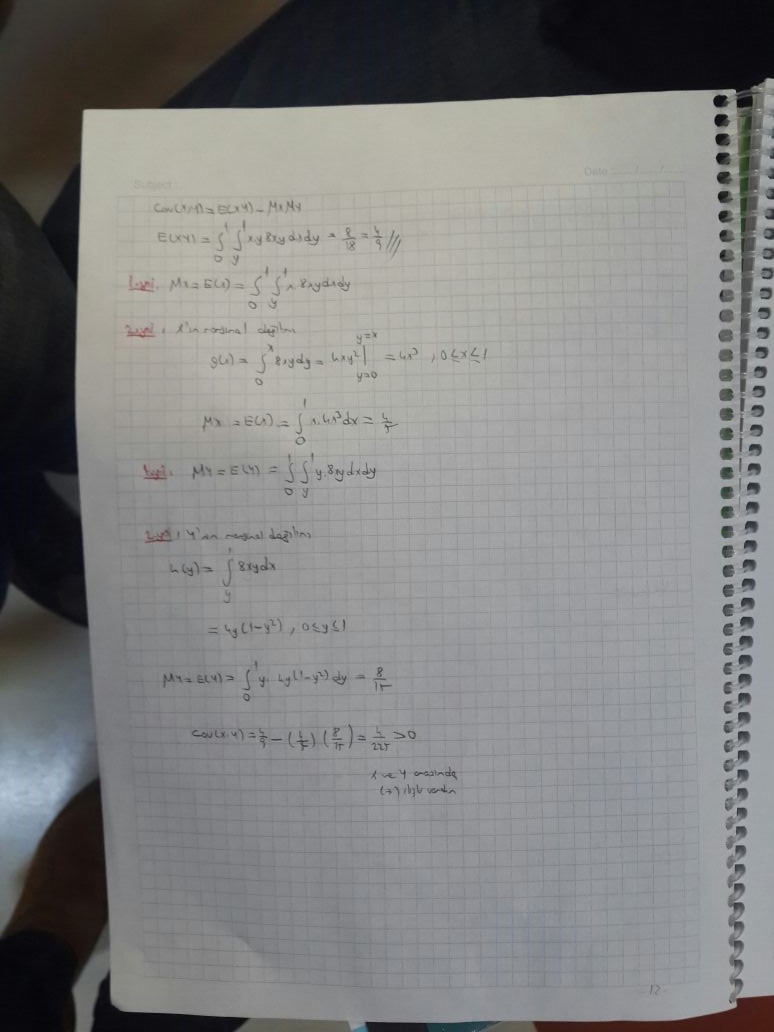 Subject
Date ...../...../.....
Cov(X,Y) = E(XY) - μxμy
E(XY) = ∫₀¹ ∫_y¹ xy 8xy dx dy = 8/18 = 4/9 //
1.yol: μx = E(x) = ∫₀¹ ∫_y¹ x 8xy dx dy
2.yol: X'in marjinal dağılımı
g(x) = ∫₀ˣ 8xy dy = 4xy² |_{y=0}^{y=x} = 4x³ , 0≤x≤1
μx = E(x) = ∫₀¹ x.4x³ dx = 4/5
1.yol: μy = E(Y) = ∫₀¹ ∫_y¹ y.8xy dx dy
2.yol: Y'nin marjinal dağılımı
h(y) = ∫_y¹ 8xy dx
= 4y(1-y²) , 0≤y≤1
μy = E(Y) = ∫₀¹ y. 4y(1-y²) dy = 8/15
Cov(X,Y) = 4/9 - (4/5) (8/15) = 4/225 > 0
X ve Y arasında
(+) ilişki vardır
-12-